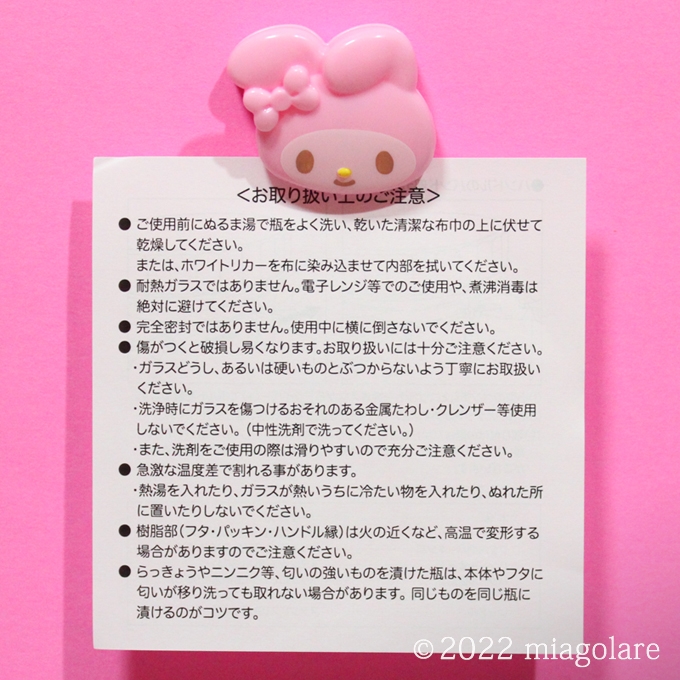 ＜お取り扱い上のご注意＞
● ご使用前にぬるま湯で瓶をよく洗い、乾いた清潔な布巾の上に伏せて
乾燥してください。
または、ホワイトリカーを布に染み込ませて内部を拭いてください。
● 耐熱ガラスではありません。電子レンジ等でのご使用や、煮沸消毒は
絶対に避けてください。
● 完全密封ではありません。使用中に横に倒さないでください。
● 傷がつくと破損し易くなります。お取り扱いには十分ご注意ください。
・ガラスどうし、あるいは硬いものとぶつからないよう丁寧にお取扱い
ください。
・洗浄時にガラスを傷つけるおそれのある金属たわし・クレンザー等使用
しないでください。（中性洗剤で洗ってください。）
・また、洗剤をご使用の際は滑りやすいので充分ご注意ください。
● 急激な温度差で割れる事があります。
・熱湯を入れたり、ガラスが熱いうちに冷たい物を入れたり、ぬれた所
に置いたりしないでください。
● 樹脂部（フタ・パッキン・ハンドル縁）は火の近くなど、高温で変形する
場合がありますのでご注意ください。
● らっきょうやニンニク等、匂いの強いものを漬けた瓶は、本体やフタに
匂いが移り洗っても取れない場合があります。同じものを同じ瓶に
漬けるのがコツです。
©2022 miagolare